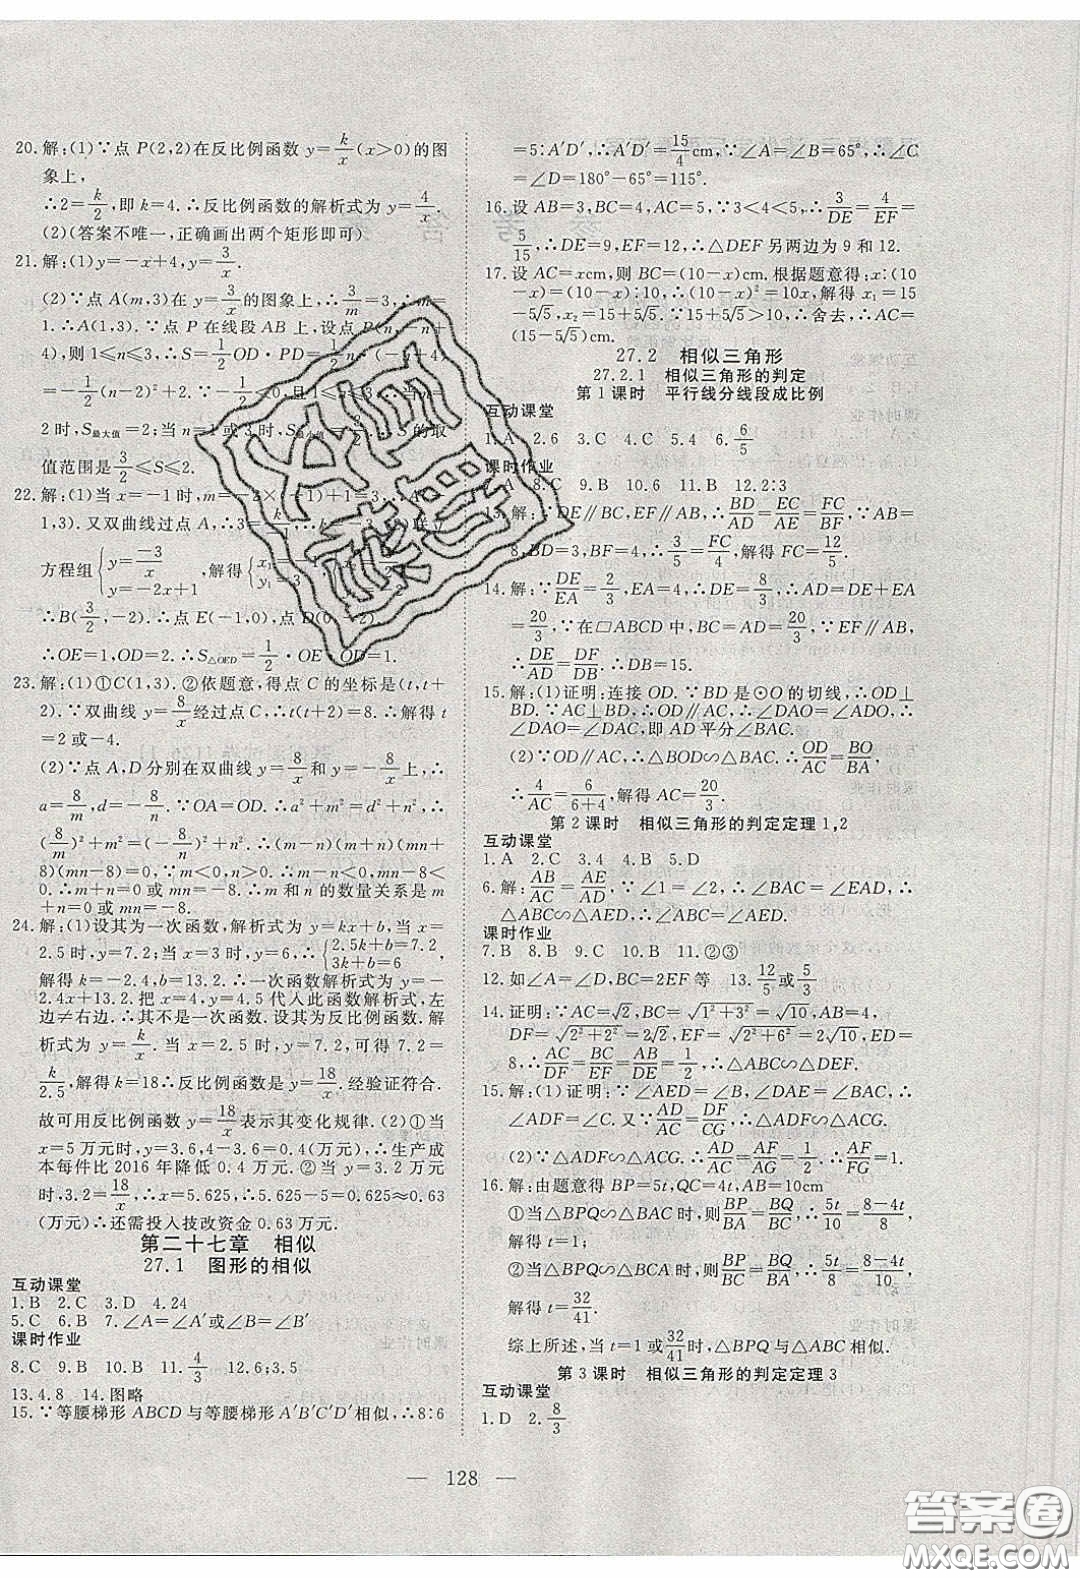 20.解:(1)∵点 P(2,2)在反比例函数 y=k/x(x>0)的图
象上,
∴2=k/2,即 k=4.∴反比例函数的解析式为 y=4/x.
(2)(答案不唯一,正确画出两个矩形即可)
21.解:(1)y=-x+4,y=3/x.
(2)∵点 A(m,3)在 y=3/x的图象上,∴3/m=3,m=
1.∴A(1,3).∵点 P 在线段 AB 上,设点 P(n,-n+
4),则 1≤n≤3,∴S=1/2 OD·PD=1/2 n(-n+4)
=-1/2(n-2)²+2,
2 时,S最大值=2;当 n=1 或 3 时,S最小值=3/2.∴S 的取
值范围是3/2≤S≤2.
22.解:(1)当 x=-1 时,m=-2×(-1)+1=3,∴A(-
1,3).又双曲线过点 A,
方程组{y=-3/x y=-2x+1,解得
∴B(3/2,-2).∴点 E(-1,0),点 D(0,-2).
∴OE=1,OD=2.∴S△OED=1/2·OE·OD=1.
23.解:(1)①C(1,3).②依题意,得点 C 的坐标是(t,t+
2).∵双曲线 y=8/x经过点 C,∴t(t+2)=8.解得 t
=2或-4.
(2)∵点 A,D 分别在双曲线 y=8/x和 y=-8/x上,∴
a=8/m,d=-8/n.∵OA=OD.∴a²+m²=d²+n²,∴
(8/m)²+m²=(-8/n)²+n².∴(m+n)(m-n)(mn+
8)(mn-8)=0.∵m<0,n>0.∴m-n<0,mn-8<
0,∵m+n≠0,∴mn+8=0.∴m 和 n 的数量关系是 m
+n=0或mn=-8.
24.解:(1)设其为一次函数,解析式为 y=kx+b,当 x=
2.5 时,y=7.2;当 x=3 时,y=6,∴{2.5k+b=7.2 3k+b=6.
解得 k=-2.4,b=13.2.∴一次函数解析式为 y=-
2.4x+13.2.把 x=4,y=4.5代入此函数解析式,左
边≠右边.∴其不是一次函数.设其为反比例函数.解
析式为 y=k/x.当 x=2.5 时,y=7.2,可得 7.2=
k/2.5,解得 k=18∴反比例函数是 y=18/x.经验证符合.
故可用反比例函数 y=18/x表示其变化规律.(2)①当
x=5 万元时,y=3.6,4-3.6=0.4(万元),∴生产成
本每件比 2016 年降低 0.4 万元.②当 y=3.2 万元
时,3.2=18/x,∴x=5.625,∴5.625-5=0.625≈0.63
(万元)∴还需投入技改资金 0.63 万元.
第二十七章 相似
27.1 图形的相似
互动课堂
1.B 2.C 3.D 4.24
5.C 6.B 7.∠A=∠A′或∠B=∠B′
课时作业
8.C 9.B 10.B 11.4/3 12.6;3.5
13.4.8 14.图略
15.∵等腰梯形 ABCD 与等腰梯形 A′B′C′D′相似,∴8:6
=5:A′D′,∴A′D′=15/4cm,∵∠A=∠B=65°,∴∠C
=∠D=180°-65°=115°.
16.设 AB=3,BC=4,AC=5,∵3<4<5,∴3/DE=4/EF=
5/15,∴DE=9,EF=12,∴△DEF 另两边为 9 和 12.
17.设 AC=xcm,则 BC=(10-x)cm.根据题意得:x:(10
-x)=(10-x):10,∴(10-x)²=10x,解得 x₁=15
-5√5,x₂=15+5√5,∵15+5√5>10,∴舍去,∴AC=
(15-5√5)cm.
27.2 相似三角形
27.2.1 相似三角形的判定
第 1 课时 平行线分线段成比例
互动课堂
1.A 2.6 3.C 4.C 5.4 6.6/5
课时作业
7.A 8.C 9.B 10.6 11.B 12.2:3
13.解:∵DE∥BC,EF∥AB,∴BD/AD=EC/AE=FC/BF.∵AD=
8,BD=3,BF=4,∴3/5=FC/4,解得 FC=12/5.
14.解:∵DE/EA=2/3,EA=4,∴DE=8/3,∴AD=DE+EA
=20/3,∵在□ABCD 中,BC=AD=20/3,∵EF∥AB,
∴DE/AD=DF/DB.∴DB=15.
15.解:(1)证明:连接 OD.∵BD 是⊙O 的切线,∴OD⊥
BD.∵AC⊥BD,∴OD∥AC,∴∠DAC=∠ADO,∴
∠DAO=∠DAC,即 AD 平分∠BAC.
(2)∵OD∥AC,∴△BOD∽△BAC.∴OD/AC=BO/BA,
∴4/AC=6/(6+4),解得 AC=20/3.
第 2 课时 相似三角形的判定定理 1,2
互动课堂
1.A 2.C 3.4 4.B 5.D
6.解:AB/AC=AE/AD,∵∠1=∠2,∴∠BAC=∠EAD,∴
△ABC∽△AED.
课时作业
7.B 8.B 9.C 10.B 11.②③
12.如∠A=∠D,BC=2EF 等 13.12/5或5/3
14.证明:∵AC=√2,BC=√(1²+3²)=√10,AB=4,
DF=√(2²+2²)=2√2,EF=√(2²+6²)=2√10,ED=
8,∴AC/DF=BC/EF=AB/DE=1/2,∴△ABC∽△DEF.
15.解:(1)证明:∵∠AED=∠B,∠DAE=∠BAC,∴
∠ADF=∠C.又∵AD/AC=DF/CG,∴△ADF∽△ACG.
(2)∵△ADF∽△ACG.∴AD/AC=AF/AG=1/2.∴AF/FG=1.
16.解:由题意得 BP=5t,QC=4t,AB=10cm
①当△BPQ∽△ABC 时,则BP/BA=BQ/BC,∴5t/10=(8-4t)/8,
解得 t=1;
②当△BPQ∽△BCA 时,则BP/BC=BQ/BA,∴5t/8=(8-4t)/10,
解得 t=32/41.
综上所述,当 t=1 或32/41时,△BPQ 与△ABC 相似.
第 3 课时 相似三角形的判定定理 3
互动课堂
1.D 2.8/3
— 128 —
答案圈
MXQE.COM